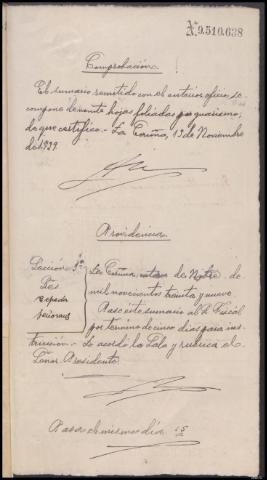 Nº 9.510.638
Comprobación.
El sumario remitido con el anterior oficio se
compone de veinte hojas foliadas por guarismo;
de que certifico.- La Coruña, 13 de Noviembre
de 1939.
Providencia.
Sección 1ª
La Coruña, de Nobre. de
Cepeda
mil novecientos treinta y nueve.
Pase este sumario al Sr. Fiscal
por termino de cinco dias para ins-
trucción.- Lo acordó la Sala y rubrica el
Señor Presidente.
Pasa el mismo día.